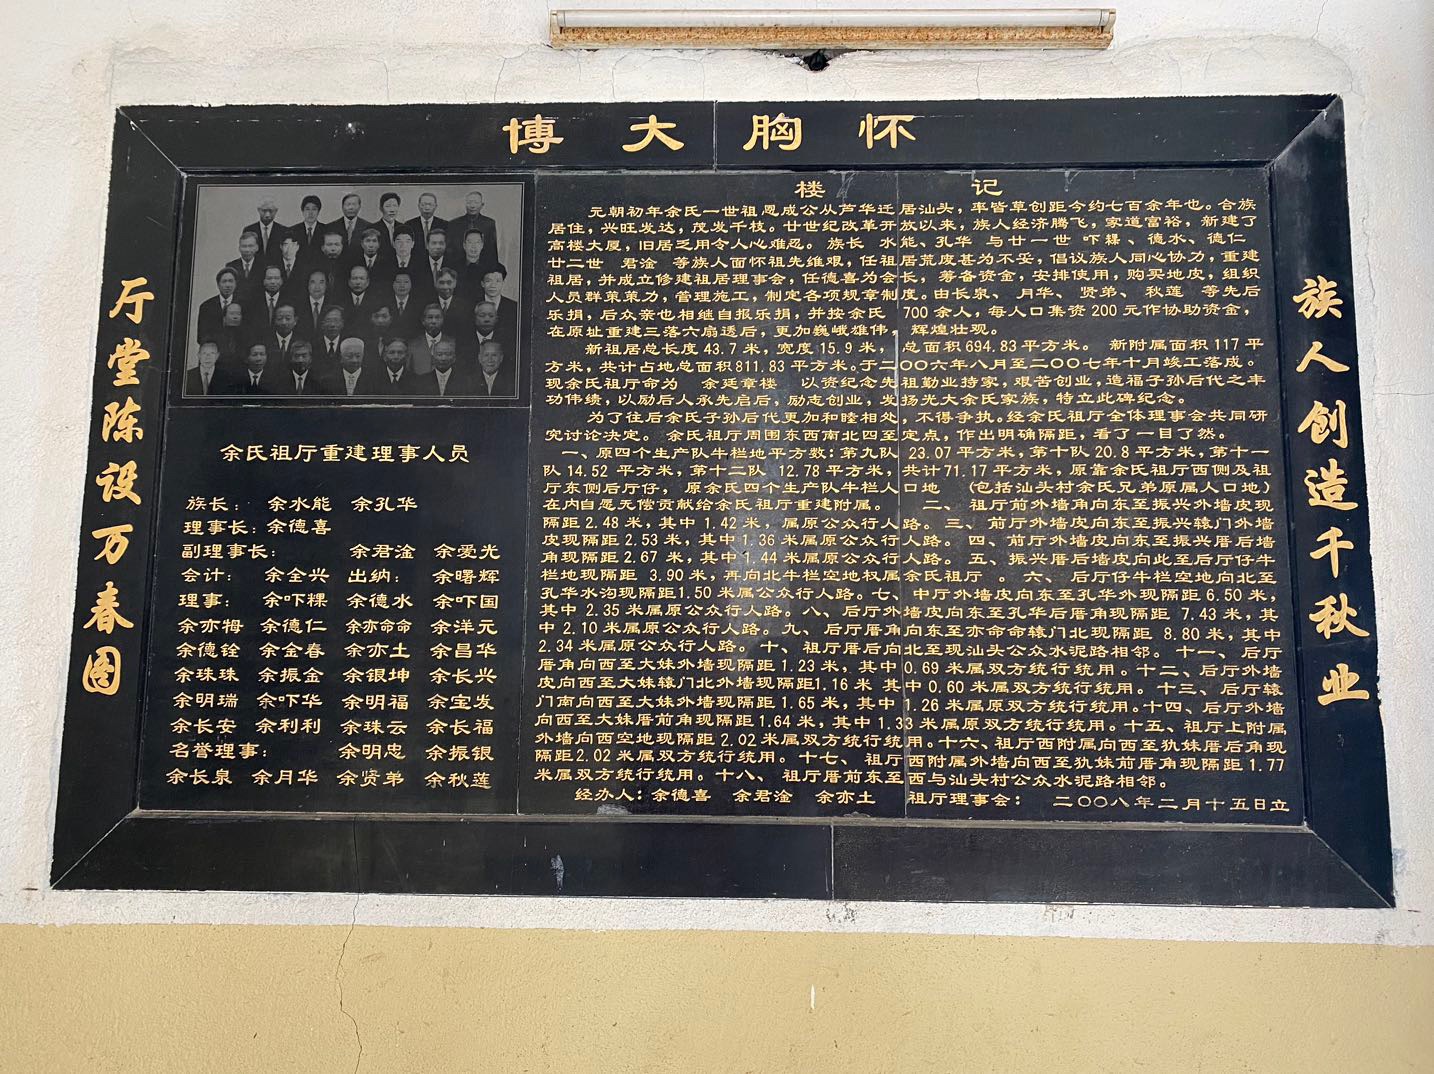 博大胸怀
族人创造千秋业
厅堂陈设万春图
余氏祖厅重建理事人员
族长： 余水能 余孔华
理事长：余德喜
副理事长： 余君淦 余爱光
会计： 余全兴 出纳： 余曙辉
理事： 余吓粿 余德水 余吓国
余亦拇 余德仁 余亦命命 余洋元
余德铨 余金春 余亦土 余昌华
余珠珠 余振金 余银坤 余长兴
余明瑞 余吓华 余明福 余宝发
余长安 余利利 余珠云 余长福
名誉理事： 余明忠 余振银
余长泉 余月华 余贤弟 余秋莲
楼 记
元朝初年余氏一世祖恩成公从芦华迁居汕头，率皆草创距今约七百余年也。合族
居住，兴旺发达，茂发千枝。廿世纪改革开放以来，族人经济腾飞，家道富裕，新建了
高楼大厦，旧居乏用令人心难忍。族长 水能、孔华 与廿一世 吓粿、德水、德仁
廿二世 君淦 等族人面怀祖先维艰，任祖居荒废甚为不妥，倡议族人同心协力，重建
祖居，并成立修建祖居理事会，任德喜为会长，筹备资金，安排使用，购买地皮，组织
人员群策策力，管理施工，制定各项规章制度。由长泉、 月华、 贤弟、 秋莲 等先后
乐捐，后众亲也相继自报乐捐，并按余氏 700余人，每人口集资200元作协助资金，
在原址重建三落六扇透后，更加巍峨雄伟，辉煌壮观。
新祖居总长度43.7米，宽度15.9米，总面积694.83平方米。 新附属面积117平
方米，共计占地总面积811.83平方米。于二〇〇六年八月至二〇〇七年十月竣工落成。
现余氏祖厅命为 余廷章楼 以资纪念先祖勤业持家，艰苦创业，造福子孙后代之丰
功伟绩，以励后人承先启后，励志创业，发扬光大余氏家族，特立此碑纪念。
为了往后余氏子孙后代更加和睦相处，不得争执。经余氏祖厅全体理事会共同研
究讨论决定。 余氏祖厅周围东西南北四至定点，作出明确隔距，看了一目了然。
一、原四个生产队牛栏地平方数：第九队 23.07平方米，第十队20.8平方米，第十一
队14.52平方米，第十二队 12.78平方米，共计71.17平方米，原靠余氏祖厅西侧及祖
厅东侧后厅仔， 原余氏四个生产队牛栏人口地 （包括汕头村余氏兄弟原属人口地）
在内自愿无偿贡献给余氏祖厅重建附属。 二、 祖厅前外墙角向东至振兴外墙皮现
隔距2.48米，其中1.42米，属原公众行人路。三、 前厅外墙皮向东至振兴辕门外墙
皮现隔距2.53米，其中1.36米属原公众行人路。四、前厅外墙皮向东至振兴厝后墙
角现隔距2.67米，其中1.44米属原公众行人路。 五、振兴厝后墙皮向此至后厅仔牛
栏地现隔距 3.90米，再向北牛栏空地权属余氏祖厅 。六、 后厅仔牛栏空地向北至
孔华水沟现隔距1.50米属公众行人路。七、中厅外墙皮向东至孔华外现隔距6.50米，
其中 2.35米属原公众行人路。八、后厅外墙皮向东至孔华后厝角现隔距 7.43米，其
中2.10米属原公众行人路。九、后厅厝角向东至亦命命辕门北现隔距 8.80米，其中
2.34米属原公众行人路。十、祖厅厝后向北至现汕头公众水泥路相邻。十一、后厅
厝角向西至大妹外墙现隔距1.23米，其中0.69米属双方统行统用。十二、后厅外墙
皮向西至大妹辕门北外墙现隔距1.16米 其中0.60米属双方统行统用。十三、后厅辕
门南向西至大妹外墙现隔距1.65米，其中1.26米属原双方统行统用。十四、后厅外墙
向西至大妹厝前角现隔距1.64米，其中1.33米属原双方统行统用。十五、祖厅上附属
外墙向西空地现隔距2.02米属双方统行统用。十六、祖厅西附属向西至犰妹厝后角现
隔距2.02米属双方统行统用。 十七、 祖厅西附属外墙向西至犰妹前厝角现隔距1.77
米属双方统行统用。十八、 祖厅厝前东至西与汕头村公众水泥路相邻。
经办人：余德喜 余君淦 余亦土 祖厅理事会： 二〇〇八年二月十五日立